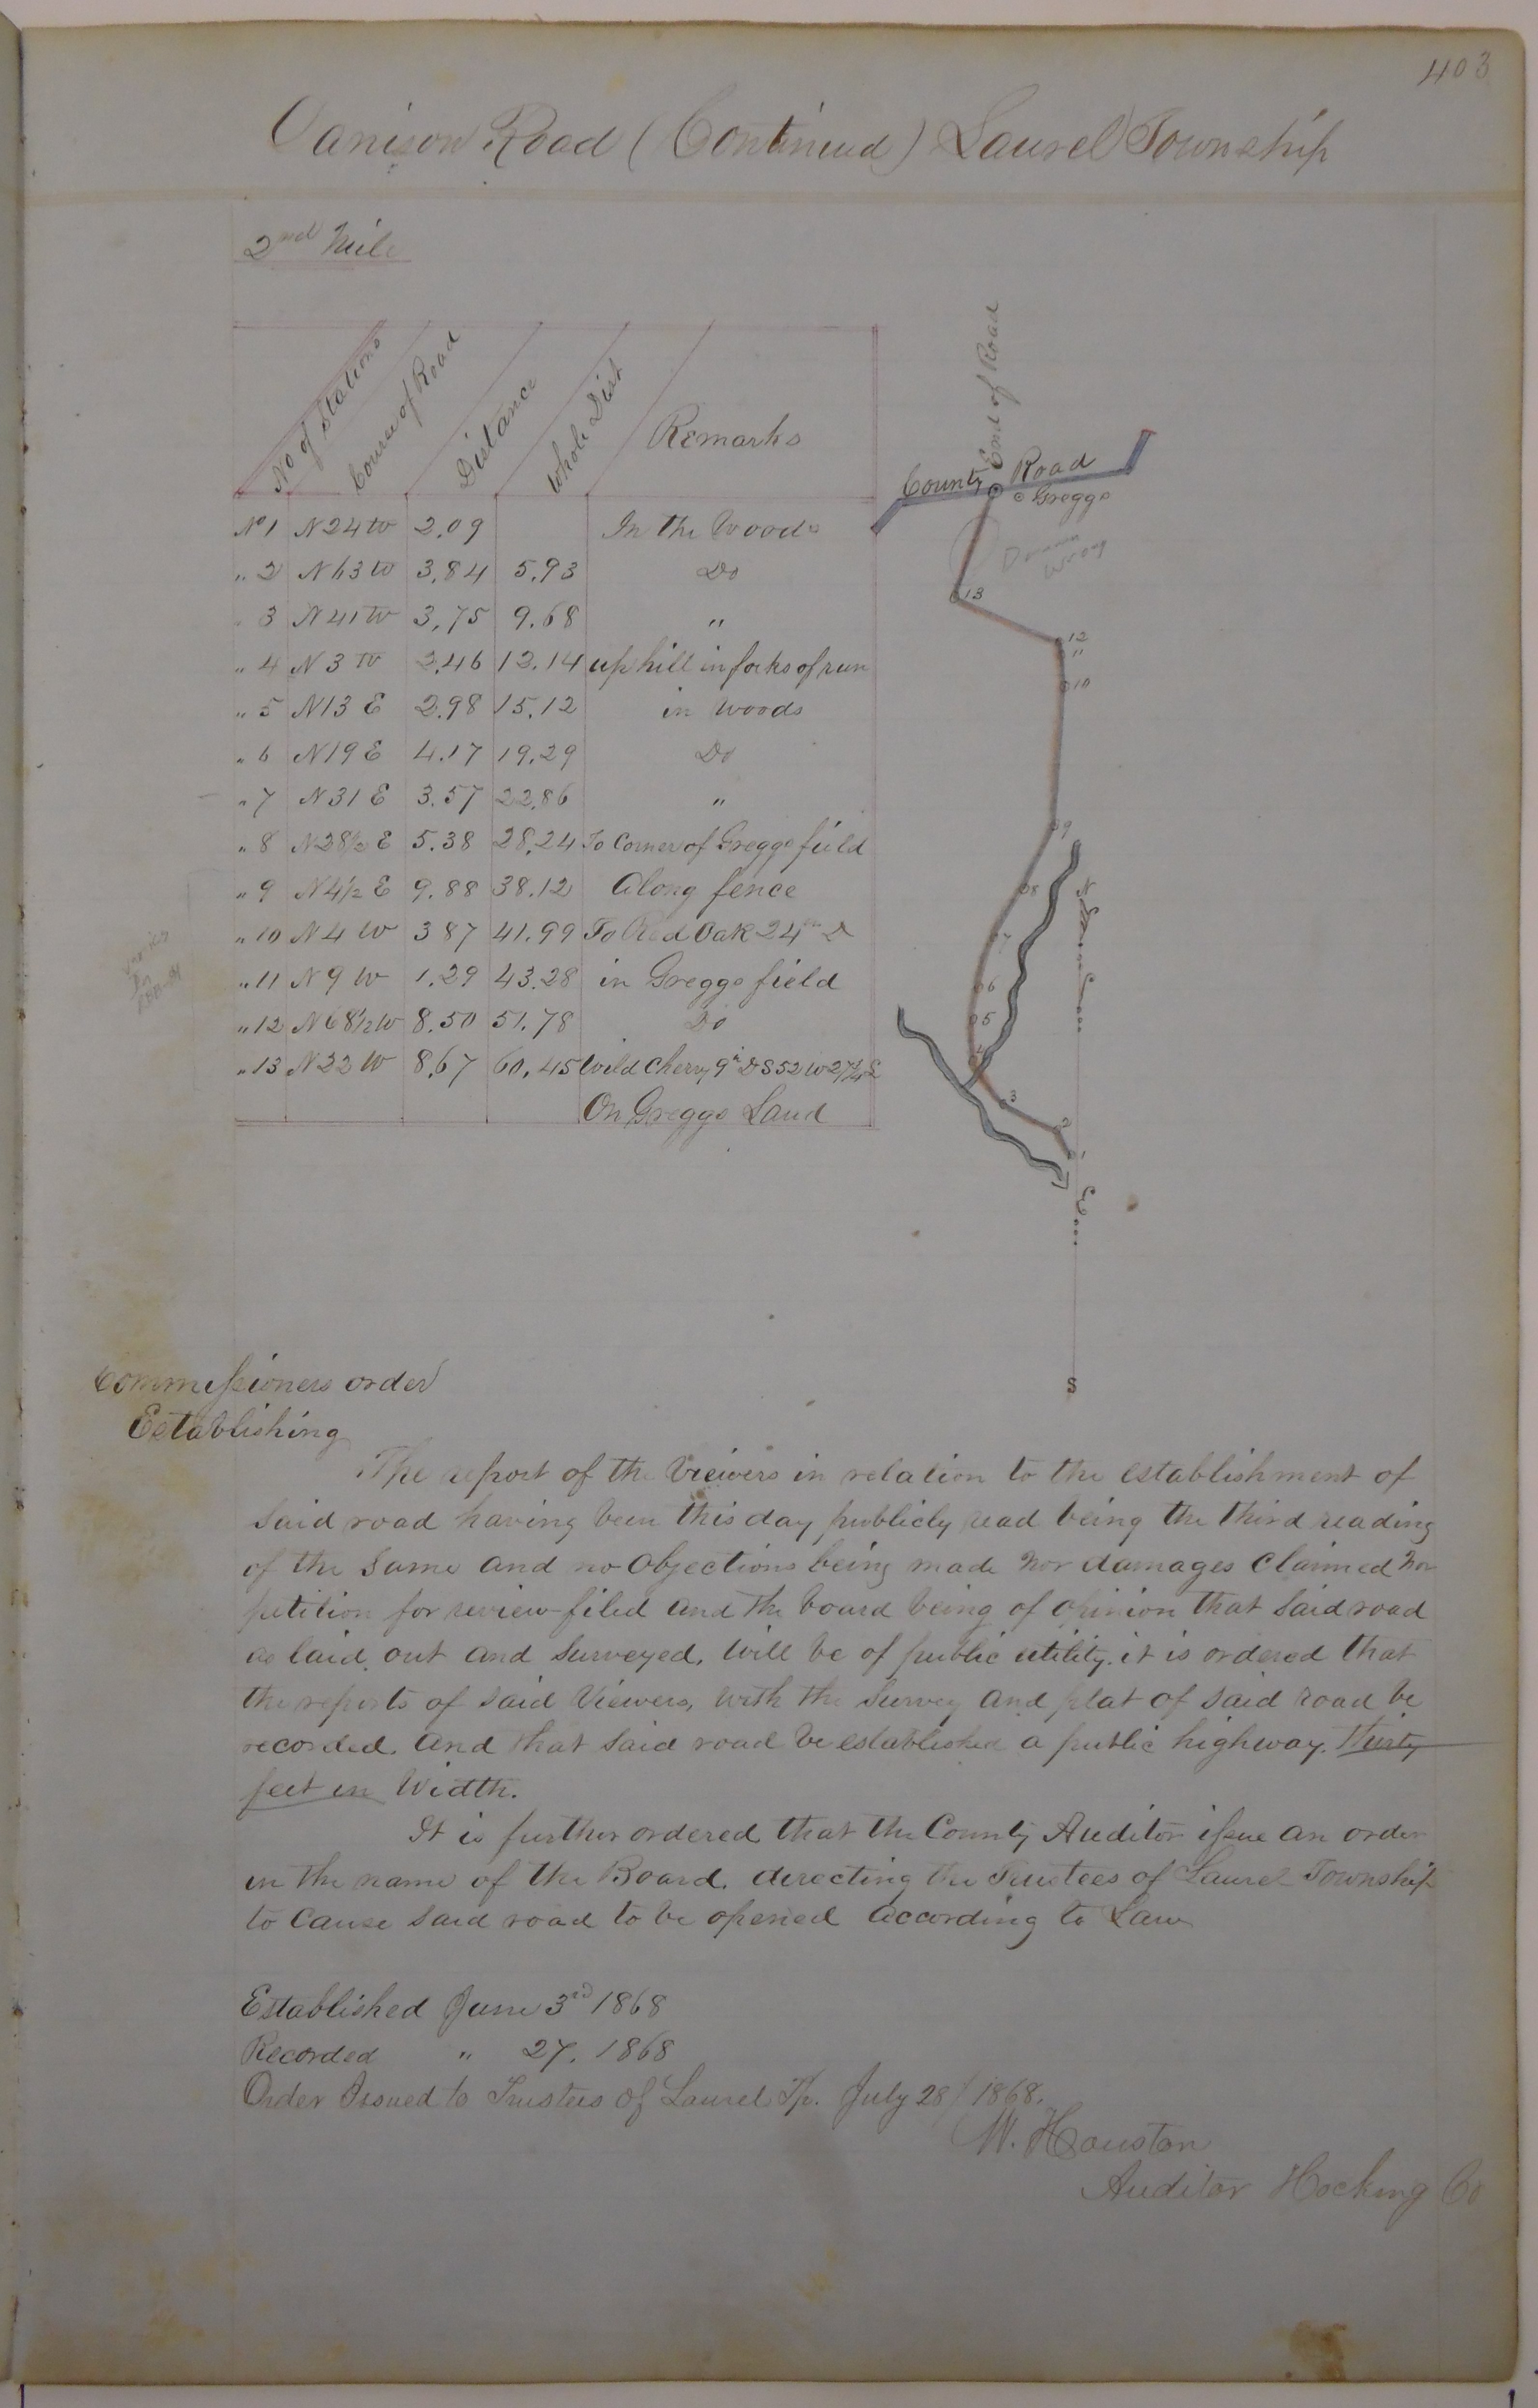 403
Vanison Road (Continued) Laurel Township
2nd Mile
No of Stations Course of Road Distance Whole Dist Remarks
No 1 N 24 W 2.09 In the Woods
" 2 N 63 W 3.84 5.93 Do
" 3 N 41 W 3.75 9.68 "
" 4 N 3 W 2.46 12.14 up hill in forks of run
" 5 N 13 E 2.98 15.12 in Woods
" 6 N 19 E 4.17 19.29 Do
" 7 N 31 E 3.57 22.86 "
" 8 N 28½ E 5.38 28.24 To Corner of Greggs field
" 9 N 4½ E 9.88 38.12 Along fence
" 10 N 4 W 3 87 41.99 To Red Oak 24in D
" 11 N 9 W 1.29 43.28 in Greggs field
" 12 N 68½ W 8.50 51.78 Do
" 13 N 22 W 8.67 60.45 Wild Cherry 9in D S 52 W 27½ L
On Greggs Land
End of Road
County Road
Greggs
Drawn
Wrong
13
12
11
10
9
8
7
6
5
4
3
2
1
N
S
Commissioners order
Establishing
The report of the Viewers in relation to the establishment of
Said road having been this day publicly read being the third reading
of the Same and no Objections being made Nor damages Claimed Nor
petition for review filed and the board being of opinion that Said road
as laid out and Surveyed, Will be of public utility. it is ordered that
the reports of said Viewers, With the Survey and plat of said road be
recorded. And that Said road be established a public highway. thirty
feet in Width.
It is further ordered that the County Auditor issue an order
in the name of the Board. directing the Trustees of Laurel Township
to Cause said road to be opened According to Law
Established June 3rd 1868
Recorded " 27. 1868
Order Issued to Trustees of Laurel Tp. July 28/ 1868.
W. Houston
Auditor Hocking Co